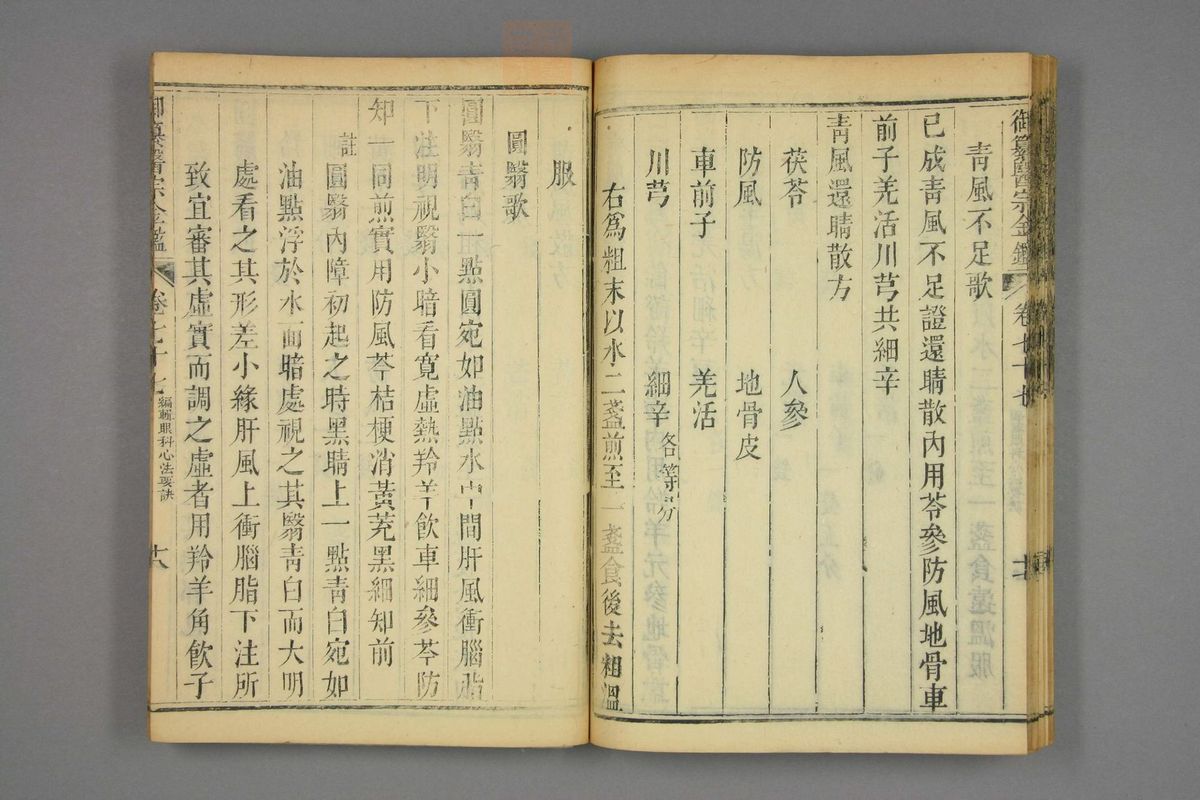 御纂醫宗金鑑 卷七十七
靑風不足歌
已成靑風不足證還睛散內用苓參防風地骨車
前子羌活川芎共細辛
靑風還睛散方
茯苓 人參
防風 地骨皮
車前子 羌活
川芎 細辛各等分
右爲粗末以水二盞煎至一盞食後去粗溫
服
圓翳歌
圓翳靑白一點圓宛如油點水中間肝風衝腦脂
下注明視翳小暗看寬虛熱羚羊飮車細參芩防
知一同煎實用防風芩桔梗消黃芫黑細知前
註圓翳內障初起之時黑睛上一點靑白宛如
油點浮於水面暗處視之其翳靑白而大明
處看之其形差小緣肝風上衝腦脂下注所
致宜審其虛實而調之虛者用羚羊角飮子
御纂醫宗金鑑 卷七十七 編輯眼科心法要訣 十八